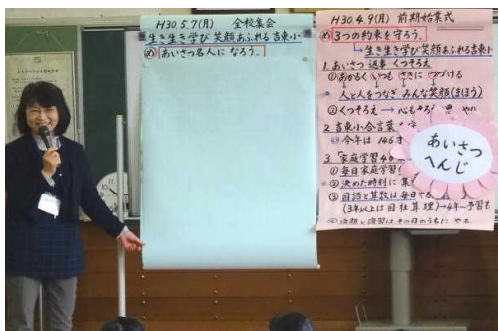 H30.5.7(月) 全校集会
生き生き学び 笑顔あふれる吉東小
め あいさつ名人になろう。
H30.4.9(月) 前期始業式
め 3つの約束を守ろう。
生き生き学び笑顔あふれる吉東小
1. あいさつ 返事 くつそろえ
①あかるく いつも さきに つづける
人と人をつなぎ みんな笑顔(まほう)
②くつそろえ → 心も
2 吉東小合言葉
今年は 146才
3 「家庭学習
①毎日家庭学習
②決めた時刻に 集
③国語と算数は毎日
(3年以上は 国社算理)→4年~予習も
あいさつ
へんじ